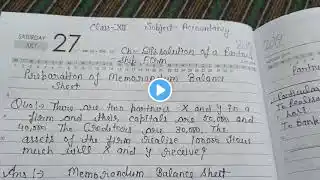 Class-XII Subject - Accountancy
SATURDAY
JULY
27
Ch:- Dissolution of a Partner
ship Firm
Preparation of Memorandum Balance
Sheet
Que:- There are two partners X and Y in a
firm and their capitals are 50,000 and
40,000. The Creditors are 30,000. The
assets of the firm realise 100000. How
much will X and Y receive?
Ans:- Memorandum Balance Sheet
Partn
Particular
To Realisa
To Bank